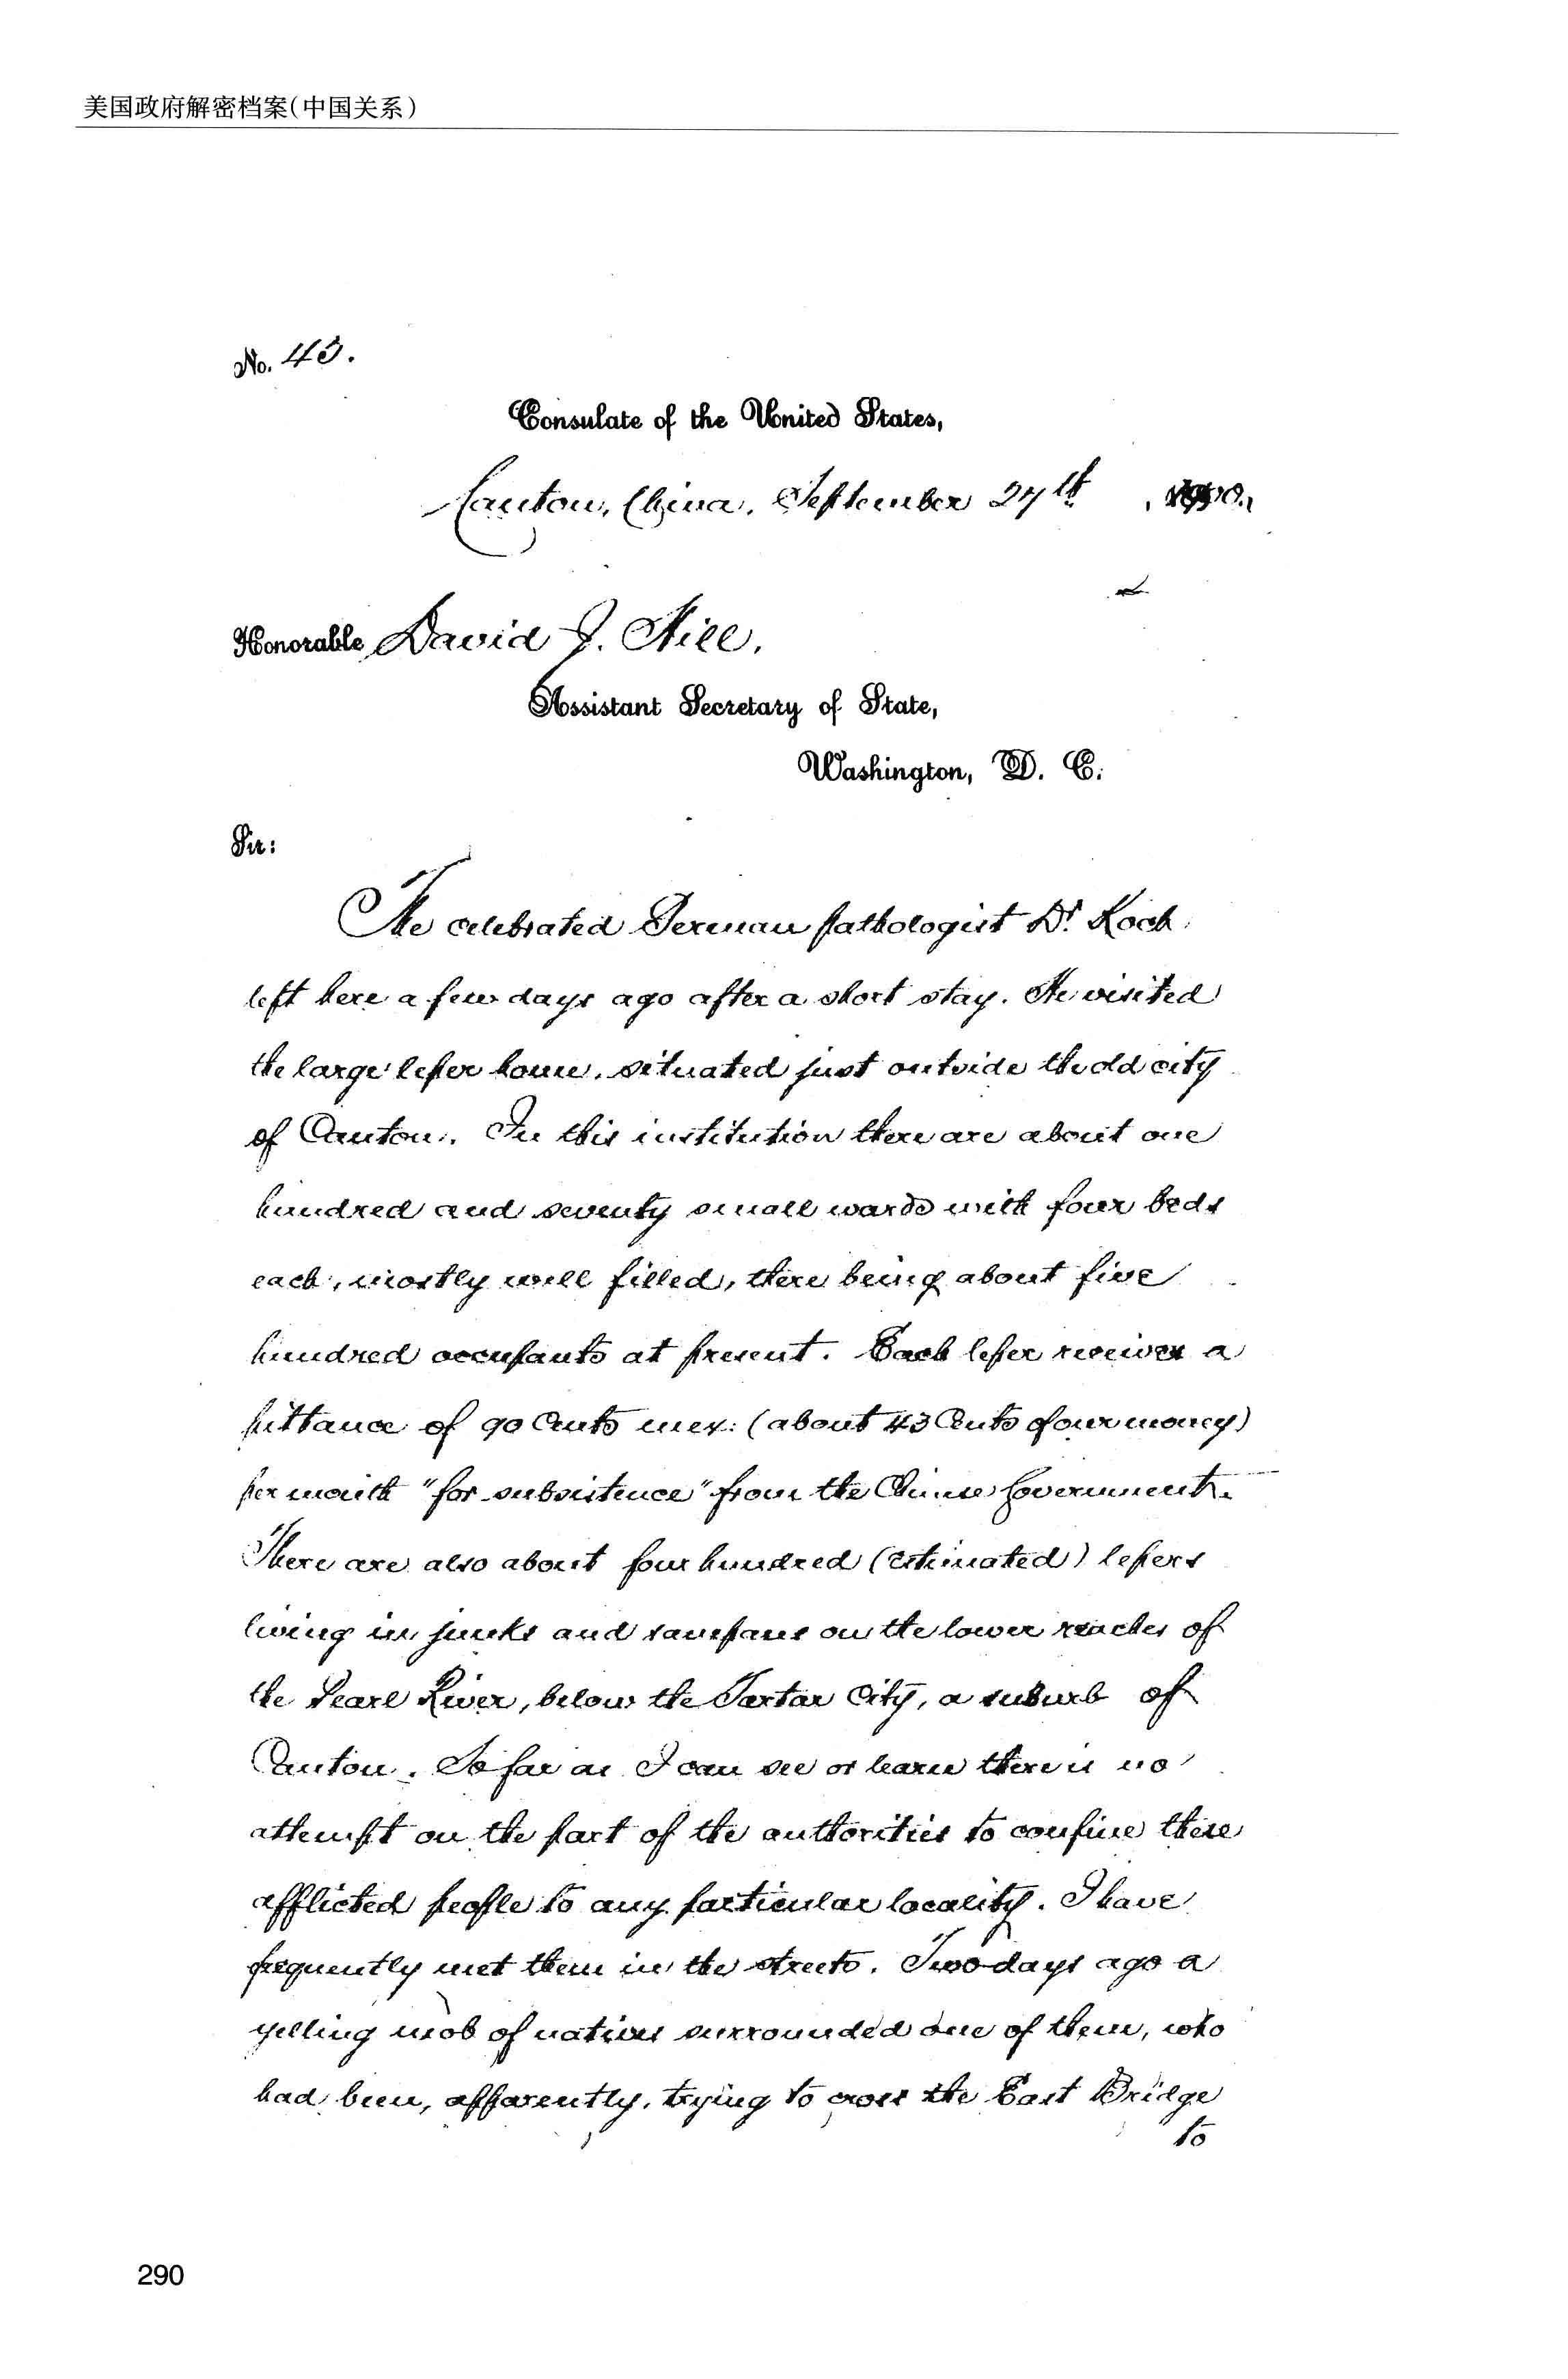 美国政府解密档案(中国关系)
No. 43.
Consulate of the United States,
Canton, China, September 27th, 1900.
Honorable David J. Hill,
Assistant Secretary of State,
Washington, D. C.
Sir:
The celebrated German pathologist Dr. Koch,
left here a few days ago after a short stay. He visited
the large leper home, situated just outside the old city
of Canton. In this institution there are about one
hundred and seventy small wards with four beds
each, mostly well filled, there being about five
hundred occupants at present. Each leper receives a
pittance of 90 Cents mex: (about 43 Cents of our money)
per month "for subsistence" from the Chinese Government.
There are also about four hundred (estimated) lepers
living in junks and sampans on the lower reaches of
the Pearl River, below the Tartar City, a suburb of
Canton. So far as I can see or learn there is no
attempt on the part of the authorities to confine these
afflicted people to any particular locality. I have
frequently met them in the streets. Two days ago a
yelling mob of natives surrounded one of them, who
had been, apparently, trying to cross the East Bridge
to
290